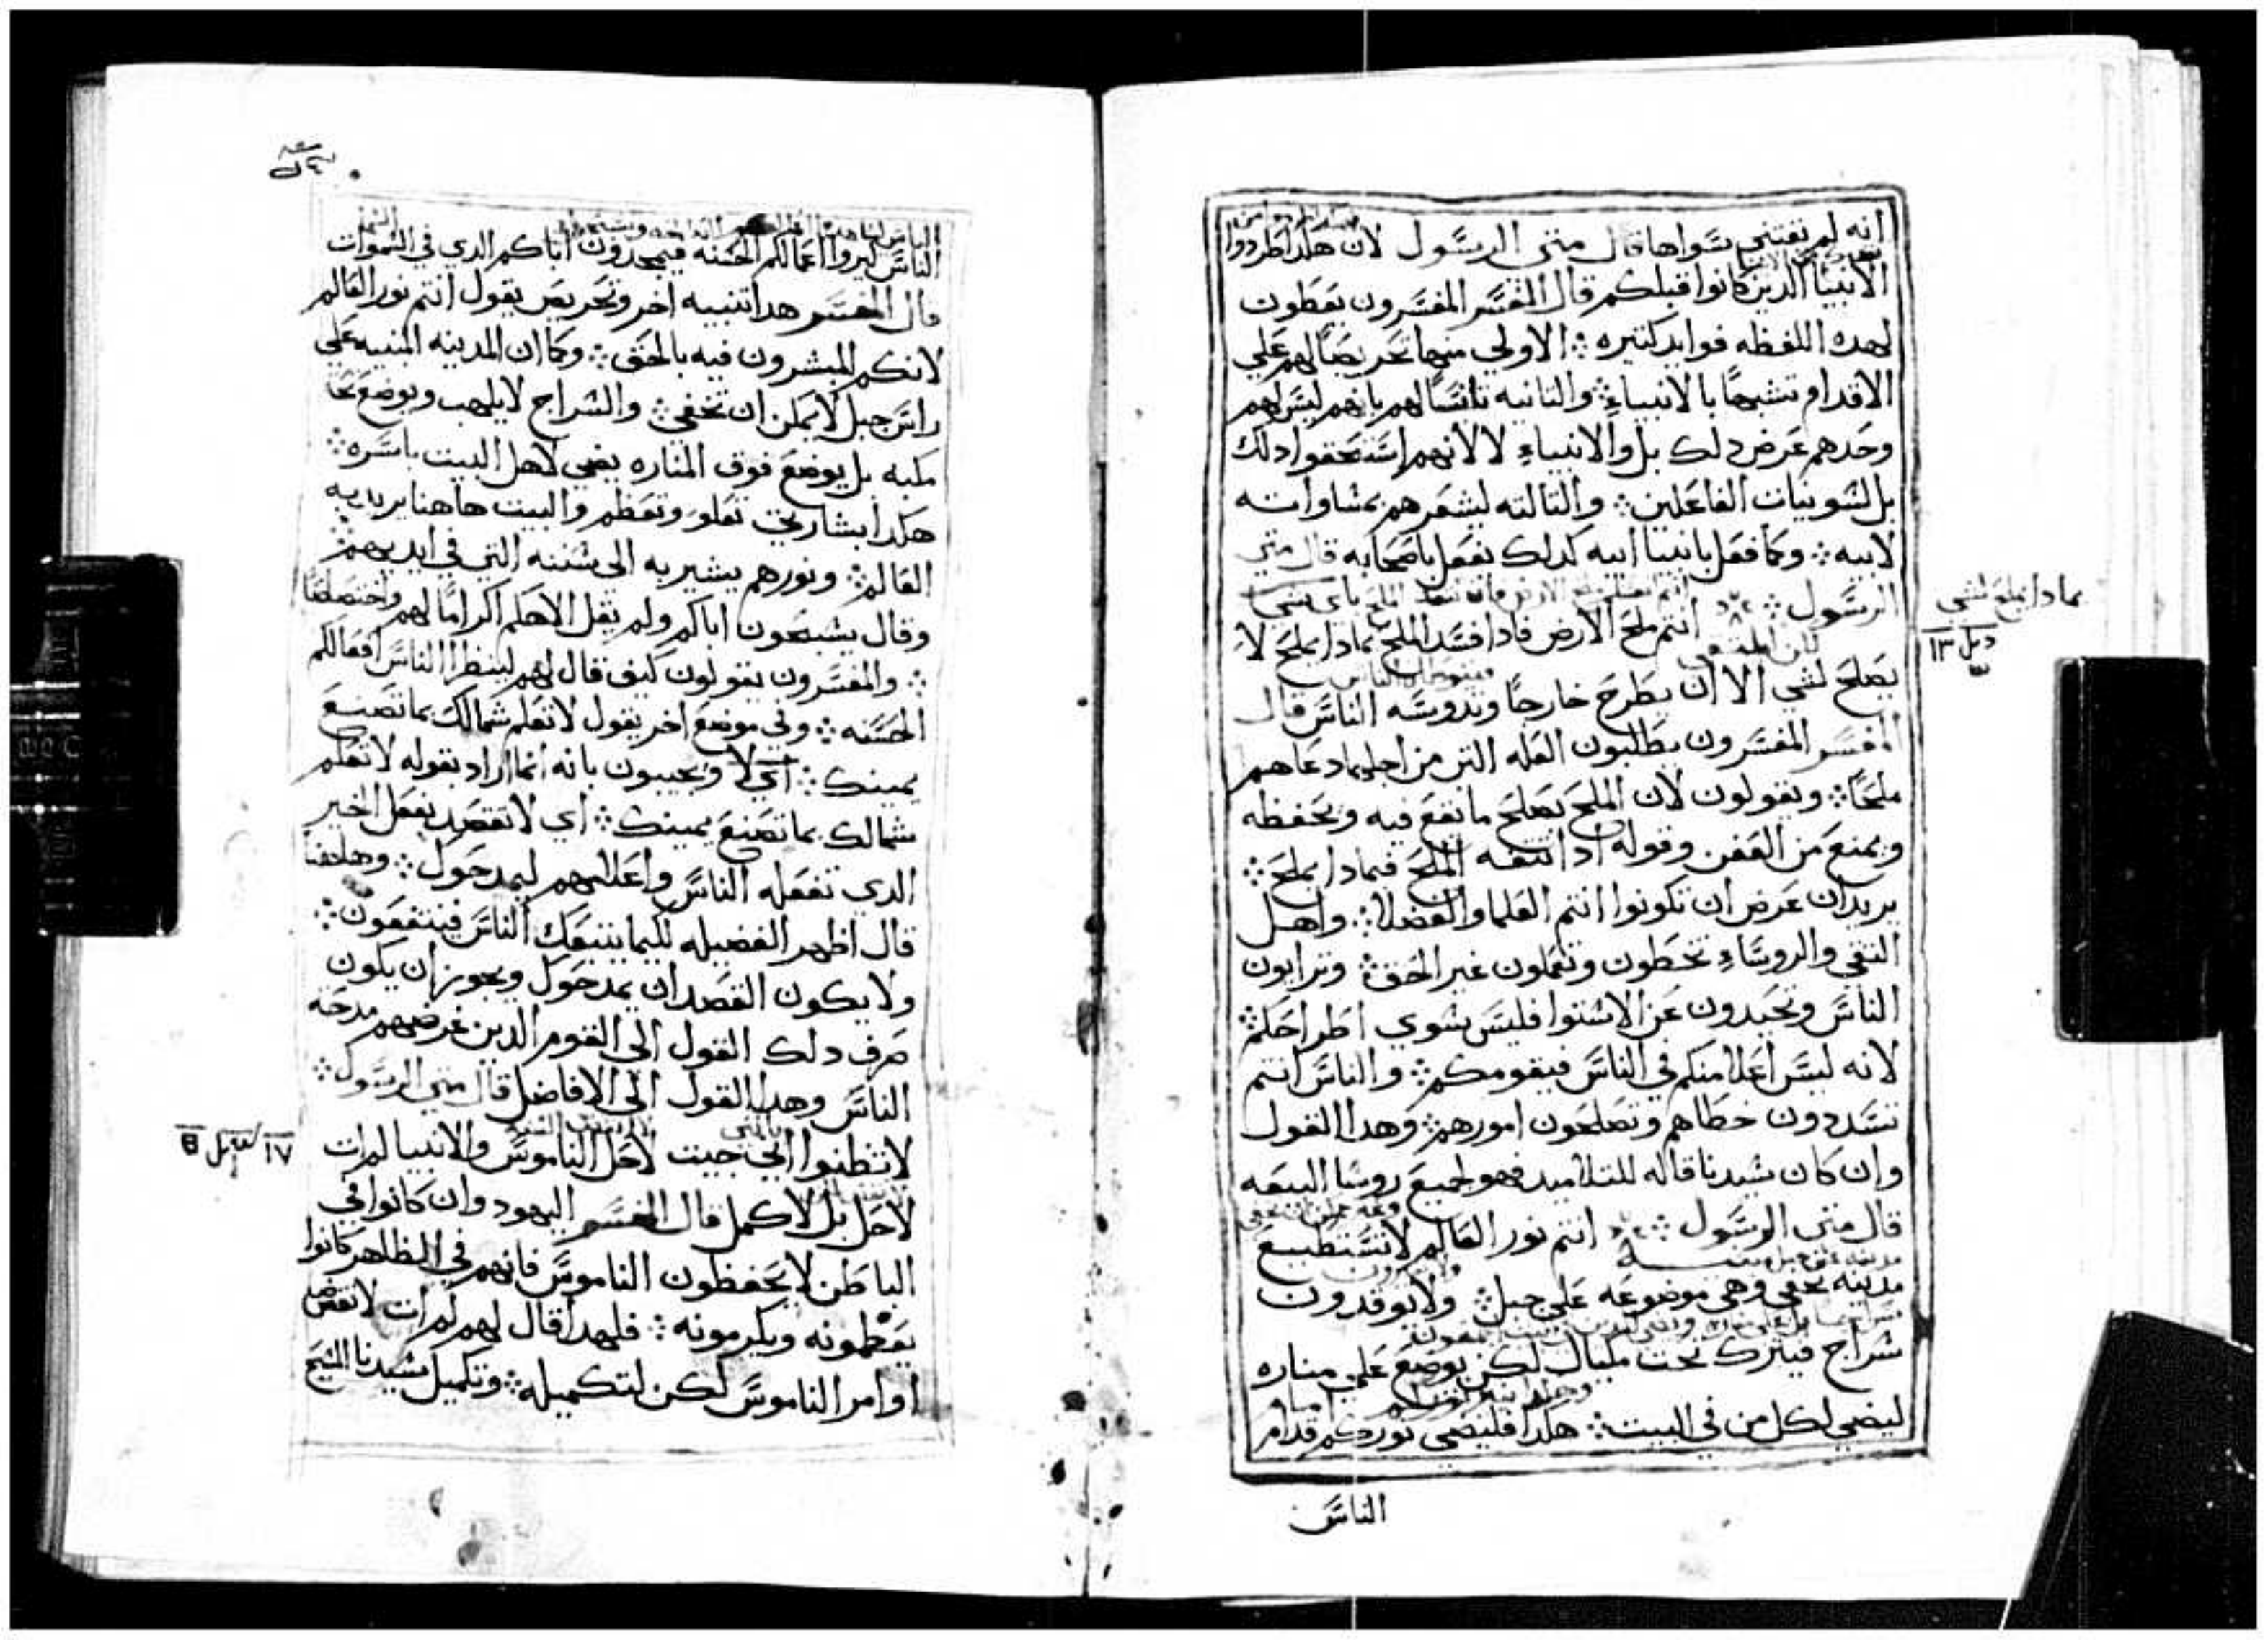 انه لم يقتني سواها قال متى الرسول لان هكدا طردوا
الانبيا الدين كانوا قبلكم قال المفسر المفسرون يعطون
لهده اللفظه فوايد كتيره ܀ الاولي منها تحريضا لهم علي
الاقدام تشبها بالانبياء ܀ والتانيه تانسا لهم بانهم ليس لهم
وحدهم عرض دلك بل والانبياء لا لانهم استحقوا دلك
بل لسو نيات الفاعلين ܀ والتالته ليشعرهم بمساواته
لابيه ܀ وكما فعل بانبيا ابيه كدلك تفعل باصحابه قال متى
الرسول ܀ انتم ملح الارض فادا فسد الملح بمادا يملح لا
بمادا يملح لشي
١٣
يصلح لشي الا ان يطرح خارجا وتدوسه الناس قال
المفسر المفسرون يطلبون العله التي من اجلها دعاهم
ملحا ܀ ويقولون لان الملح يصلح ما يقع فيه ويحفظه
ويمنع من العفن وقوله ادا تفه الملح فبمادا يملح ܀
يريد ان عرض ان تكونوا انتم العلما والفضلا ܀ واهل
التقي والروساء تخطون وتعملون غير الحق ܀ وترايون
الناس وتحيدون عن الاستوا فليس يسوي اطراحكم ܀
لانه ليس اعلا منكم في الناس فيقومكم ܀ والناس انتم
تسددون خطاهم وتصلحون امورهم ܀ وهدا القول
وان كان سيدنا قاله للتلاميد فهو لجميع روسا البيعه
قال متى الرسول ܀ انتم نور العالم لا تستطيع
مدينه تخفي وهي موضوعه علي جبل ܀ ولا يوقدون
سراج فيترك تحت مكيال لكن يوضع علي مناره
ليضي لكل من في البيت ܀ هكدا فليضي نوركم قدام
الناس
الناس ليروا اعمالكم الحسنه فيمجدون اباكم الدي في السموات
قال المفسر هدا تنبيه اخر وتحريض يقول انتم نور العالم
لانكم المبشرون فيه بالحق ܀ وكما ان المدينه المبنيه علي
راس جبل لا يمكن ان تخفي ܀ والسراج لا يلهب ويوضع تحت
مكبه بل يوضع فوق المناره يضي لاهل البيت باسره ܀
هكدا بشارتي تعلو وتعظم والبيت هاهنا يريد به
العالم ܀ ونورهم يشير به الى سننه التي في ايديهم ܀
وقال يسبحون اباكم ولم يقل الاهكم اكراما لهم واختصاصا
܀ والمفسرون يقولون كيف قال لهم لينظر الناس افعالكم
الحسنه ܀ وفي موضع اخر يقول لا تعلم شمالك بما تصنع
يمينك ܀ اي لا ويجيبون بانه انما اراد بقوله لا تعلم
شمالك بما تصنع يمينك ܀ اي لا تقصد بفعل الخير
الدي تفعله الناس واعلامهم ليمدحوك ܀ وهاهنا
قال اظهر الفضيله لكيما يتبعك الناس فينتفعون ܀
ولا يكون القصد ان يمدحوك ويجوز ان يكون
صرف دلك القول الي القوم الدين غرضهم مدحه
الناس وهدا القول الي الافاضل قال متى الرسول ܀
لا تظنوا اني جيت لاحل الناموس والانبيا لم ات
١٧
لاحل بل لاكمل قال المفسر اليهود وان كانوا في
الباطن لا يحفظون الناموس فانهم في الظاهر كانوا
يعظمونه ويكرمونه ܀ فلهدا قال لهم لم ات لانقض
اوامر الناموس لكن لتكميله ܀ وتكميل سيدنا المسيح